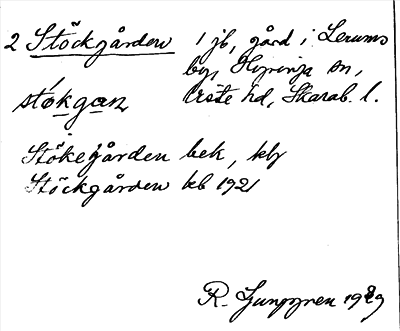 2 Stöckgården 1 jb, gård i Lerums
by, Hyringa sn,
stǿkgan Viste hd, Skarab. l.
Stökegården bek, kbg
Stöckgården kb 1921
R. Ljunggren 1929